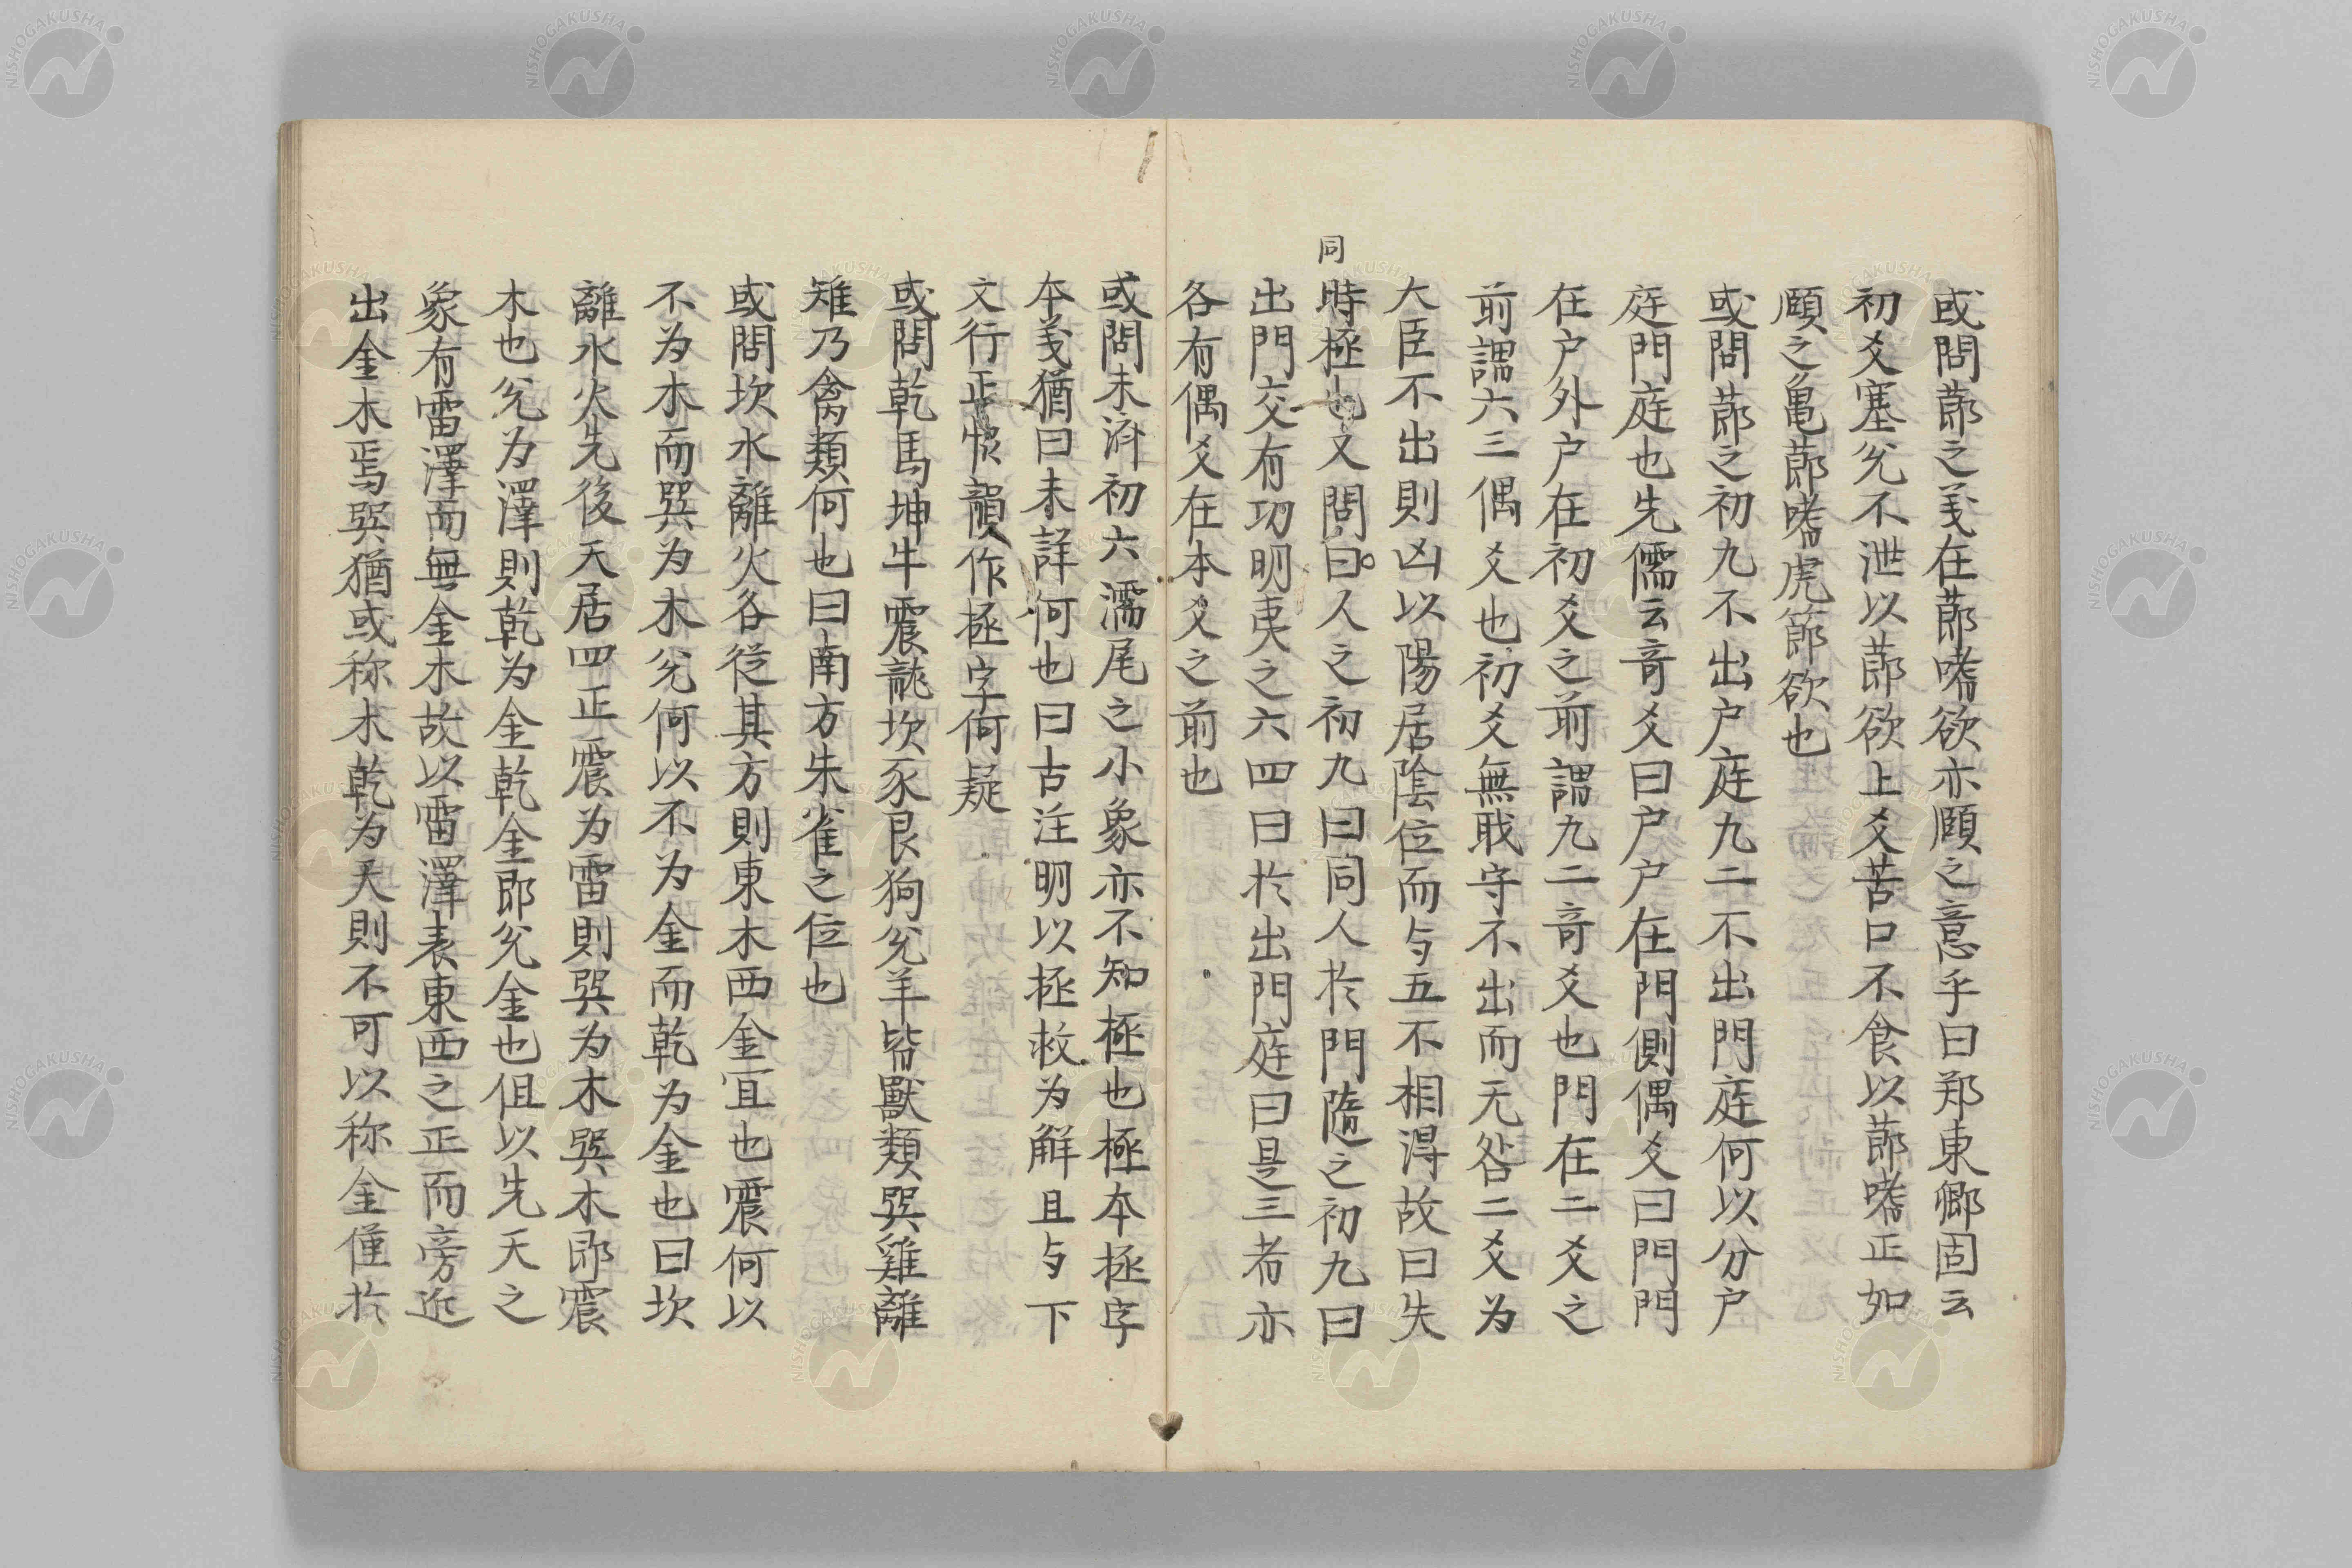 或問莭之義在莭嗜欲亦頤之意乎曰郑東卿固云
初爻塞兊不泄以莭欲上爻苦口不食以莭嗜正如
頤之亀莭嗜虎節欲也
或問莭之初九不出户庭九二不出門庭何以分户
庭門庭也先儒云竒爻曰户户在門側偶爻曰門門
在户外户在初爻之前謂九二竒爻也門在二爻之
前謂六三偶爻也初爻無戢守不出而无咎二爻为
大臣不出則凶以陽居陰位而与五不相得故曰失
時極也又問曰人之初九曰同人於門隨之初九曰
同
出門交有功明夷之六四曰於出門庭曰是三者亦
各有偶爻在本爻之前也
或問未済初六濡尾之小象亦不知極也極本拯字
本義猶曰未詳何也曰古注明以拯救为解且与下
文行正恊韻作拯字何疑
或問乾馬坤牛震龍坎豕艮狗兊羊皆獸類巽雞離
雉乃禽類何也曰南方朱雀之位也
或問坎水離火各從其方則東木西金宜也震何以
不为木而巽为木兊何以不为金而乾为金也曰坎
離水火先後天居四正震为雷則巽为木巽木即震
木也兊为澤則乾为金乾金即兊金也但以先天之
象有雷澤而無金木故以雷澤表東西之正而旁近
出金木焉巽猶或称木乾为天則不可以称金僅於
NISHOGAKUSHA